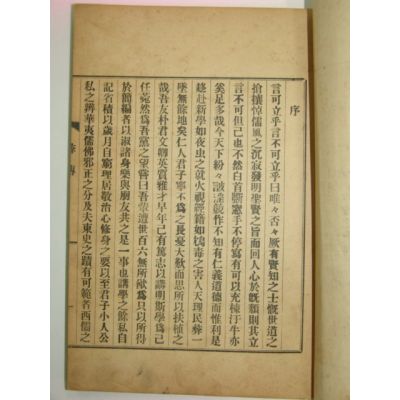 序
言可立乎言不可立乎曰唯々否々厥有賢知之士慨世道之
搶攘悼儒風之沉寂發明聖賢之旨而回人心於旣頹則其立
言不可但已也不然白首翳憲手不停寫有可以充棟汗牛亦
奚足多哉今天下紛々詖淫競作不知有仁義道德而惟利是
趍赴新學如夜虫之就火視經籍如鴆毒之害人天理民彛一
墜無餘地矣仁人君子寧不爲之長憂大歎而思所以扶植之
哉吾友朴君文卿英資雅才早年己有篤志以講明斯學爲己
任菀然爲吾黨之望嘗曰吾輩遭世百六無所猷爲只以所得
於簡編者以淑諸身樂與朋友共之是一事也講學之餘私自
記省積以歲月自窮理居敬治心修身之要以至君子小人公
私之辨華夷儒佛邪正之分及夫東史之蹟有可範者西儒之
序